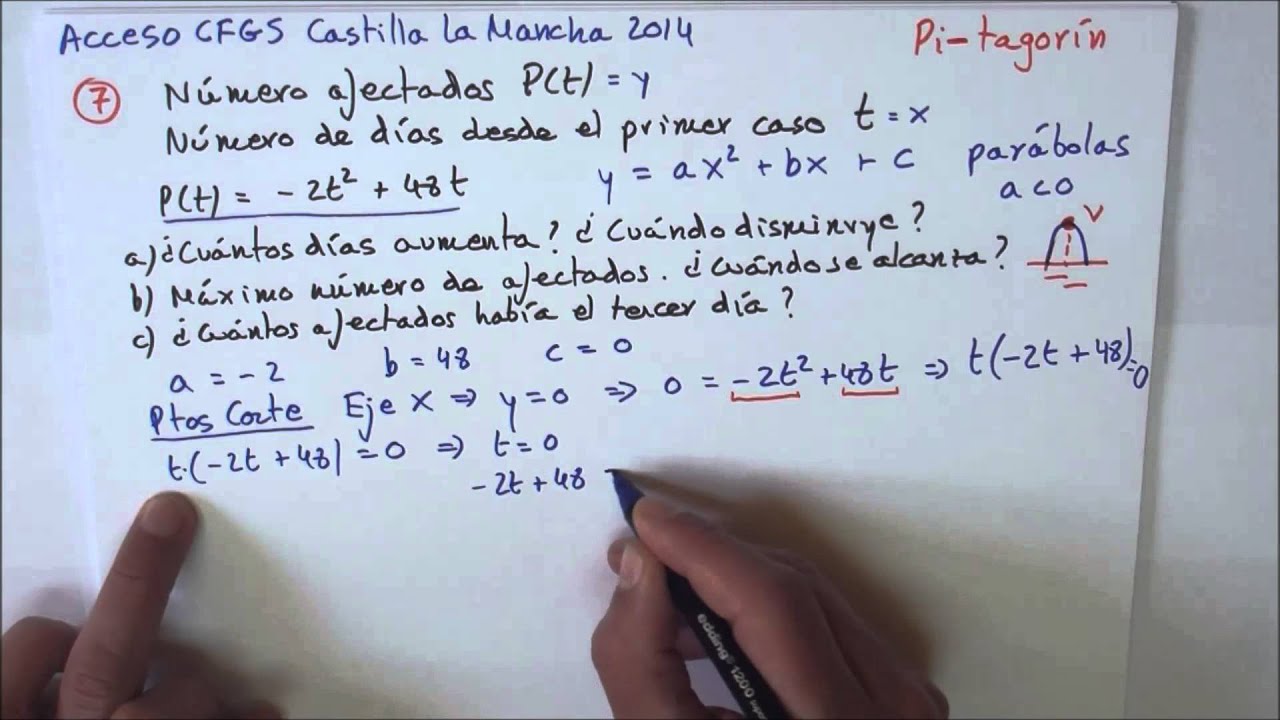 Acceso CFGS Castilla la Mancha 2014
Pi-tagorín
7 Número afectados P(t) = y
Número de días desde el primer caso t = x
P(t) = -2t² + 48t
y = ax² + bx + c parábolas
a<0
V
a) ¿Cuántos días aumenta? ¿Cuándo disminuye?
b) Máximo número de afectados. ¿Cuándo se alcanza?
c) ¿Cuántos afectados había el tercer día?
a = -2 b = 48 c = 0
Ptos Corte Eje X ⇒ y=0 ⇒ 0 = -2t² + 48t ⇒ t(-2t + 48)=0
t·(-2t + 48) = 0 ⇒ t = 0
-2t + 48
edding 1200